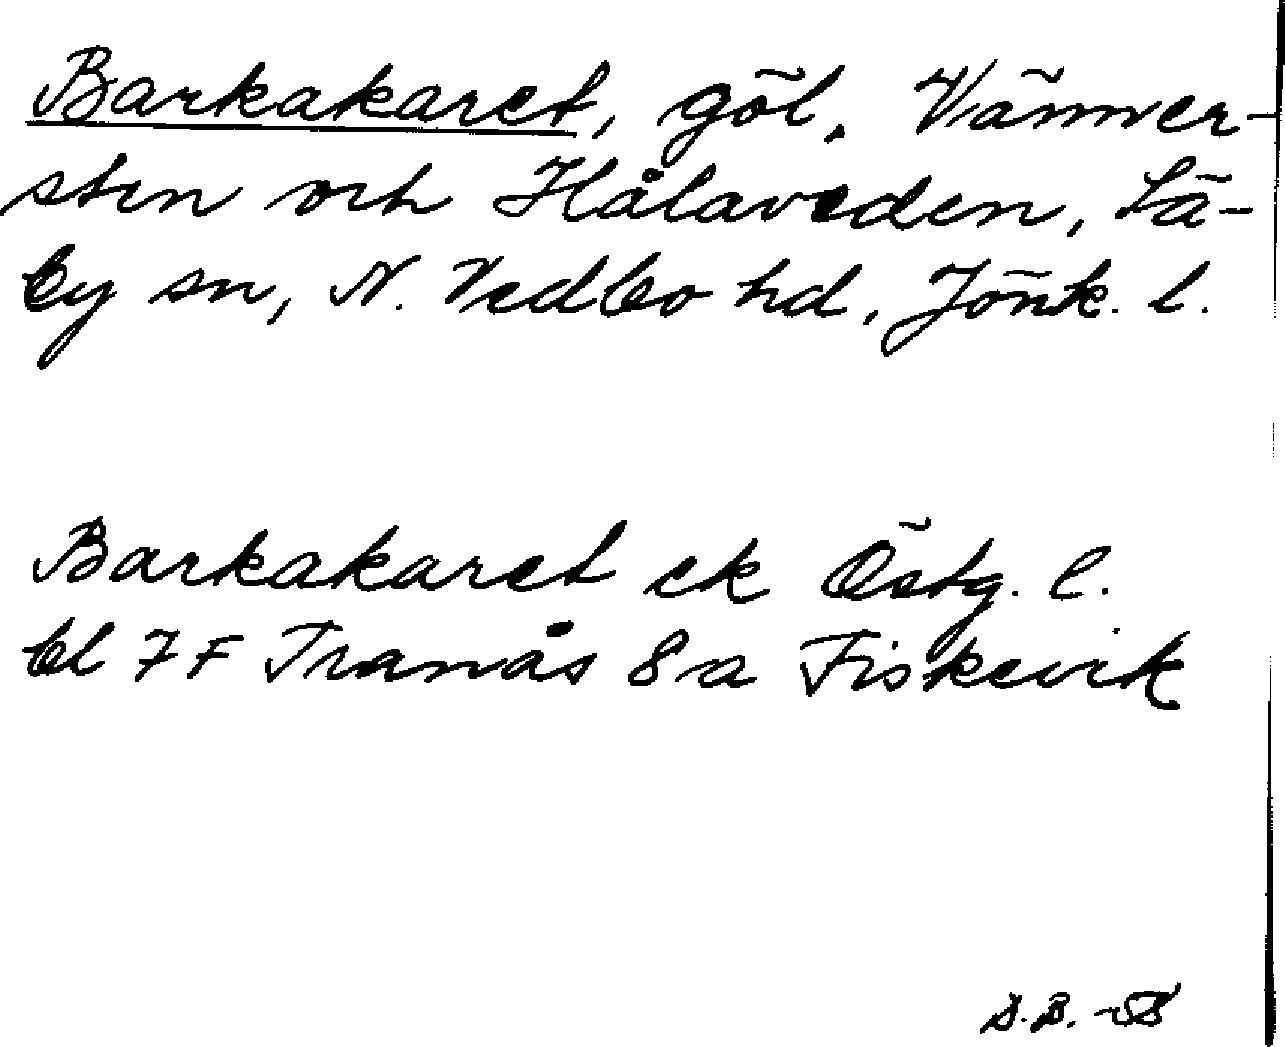 Barkakaret, göl, Vänner-
sten och Hålaveden, Sä-
by sn, N. Vedbo hd, Jönk. l.
Barkakaret ek Östg. l.
bl 7 F Tranås 8 a Fiskevik
S.B. -58